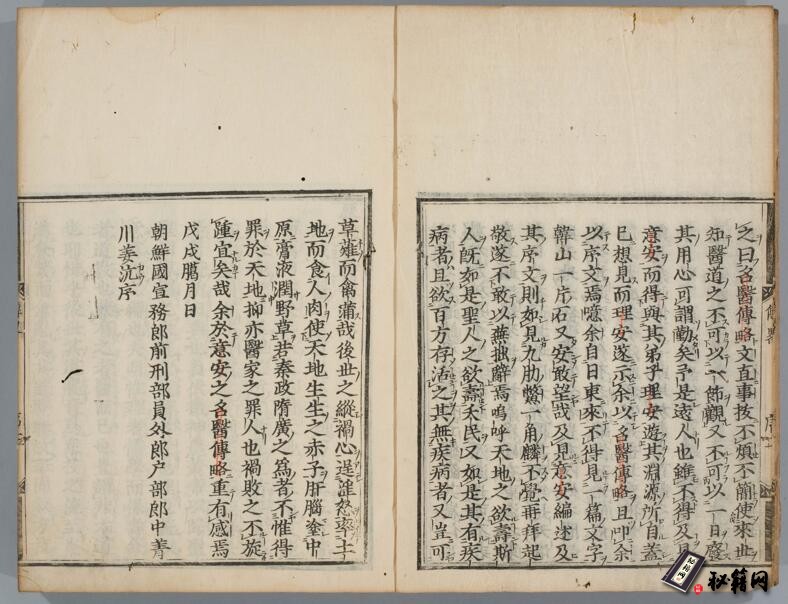 之曰名醫傳略文直事按不煩不簡使來世
知醫道之不可以一飾觀又不可以一日廢
其用心可謂勤矣予是遠人也雖不得及見
意安而得與其弟子理安遊其淵源所自蓋
已想見而理安遂示余以名醫傳略且叩余
以序文焉噫余自日東來不得見一篇文字
韓山一片石又安敢望哉及見意安編述及
其序文則如見九肋鼈一角麟不覺再拜起
敬遂不敢以蕪拙辭焉嗚呼天地之欲壽斯
人旣如是聖人之欲壽夭民又如是其有疾
病者且欲百方存活之其無疾病者又豈可
草薙而禽獮哉後世之縱禍心逞誰怒率土
地而食人肉使天地生生之赤子肝腦塗中
原膏液潤野草若秦政隋廣之爲者不惟得
罪於天地抑亦醫家之罪人也禍敗之不旋
踵宜矣哉余於意安之名醫傳略重有感焉
戊戌臘月日
朝鮮國宣務郎前刑部員外郎户部郎中菁
川姜沆序
秘籍网